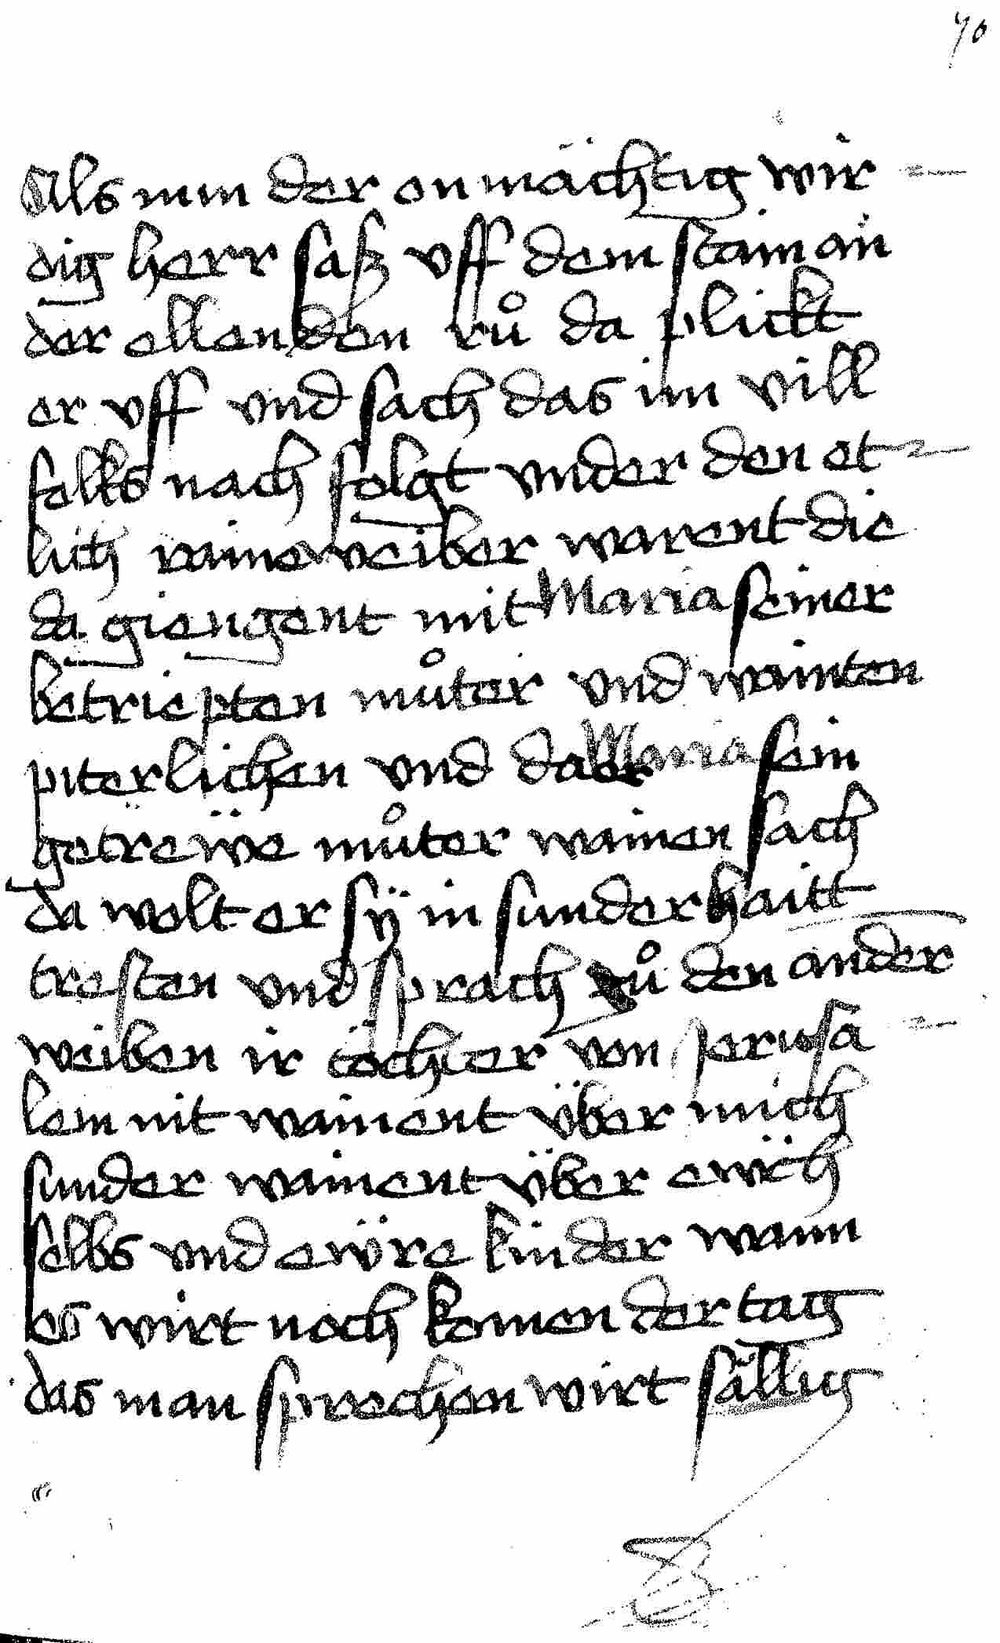 70
Als nun der onmächtig wir=
dig herr saß vff dem stain an
der ellenden rů da plickt
er vff vnd sach das im vill
folks nach folgt vnder den et=
lich raine weiber warent die
da giengent mit Maria seiner
betriepten můter vnd wainten
piterlichen vnd da er Maria sein
getrewe můter wainen sach
da wolt er sÿ in sunderhaitt
tresten vnd sprach zů den ander
weiben ir töchter von Jerusa=
lem nit wainent über mich
sunder wainent über ewch
selbs vnd ewre kinder wann
es wirt noch komen der tag
das man sprechen wirt sällig